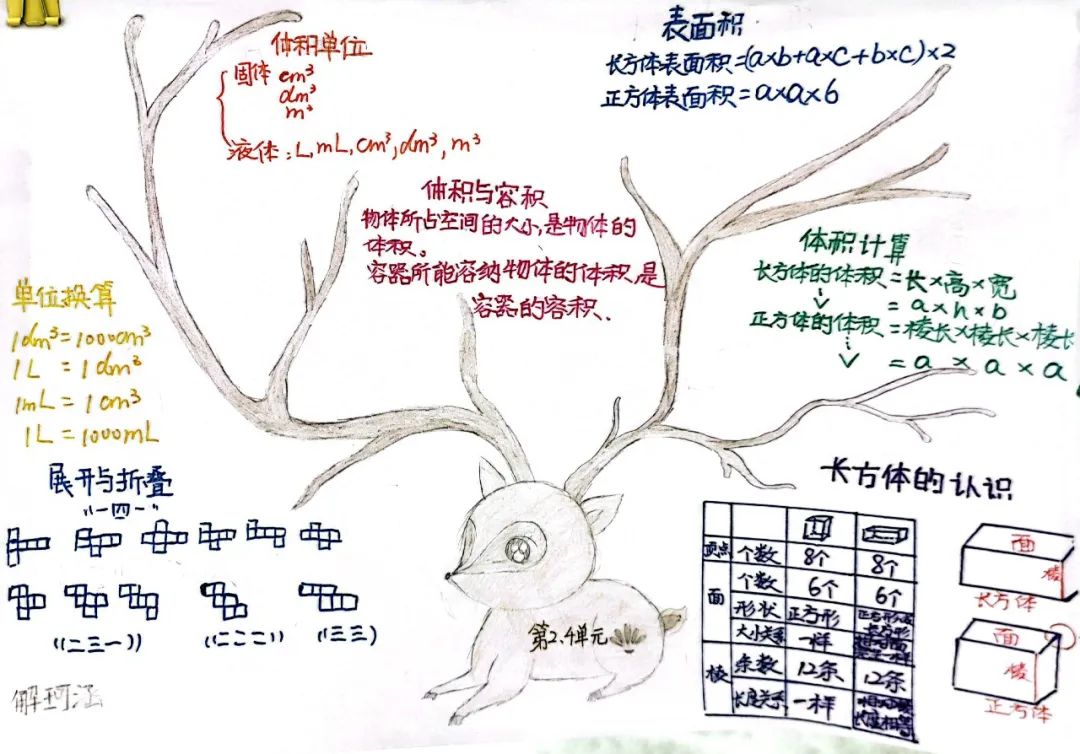 体积单位
固体 cm³
dm³
m³
液体:L,mL,cm³,dm³,m³
表面积
长方体表面积=(a×b+a×c+b×c)×2
正方体表面积=a×a×6
体积与容积
物体所占空间的大小,是物体的
体积。
容器所能容纳物体的体积,是
容器的容积.
体积计算
长方体的体积=长×高×宽
=a×h×b
正方体的体积=棱长×棱长×棱长
=a×a×a
单位换算
1dm³=1000cm³
1L=1dm³
1mL=1cm³
1L=1000mL
展开与折叠
"一四一"
"二三一"
"二二二"
"三三"
第2.4单元
长方体的认识
顶点 个数 8个 8个
面 个数 6个 6个
形状 正方形
大小关系 一样
棱 条数 12条 12条
长度关系 一样
面
棱
长方体
面
棱
正方体
解珂涵